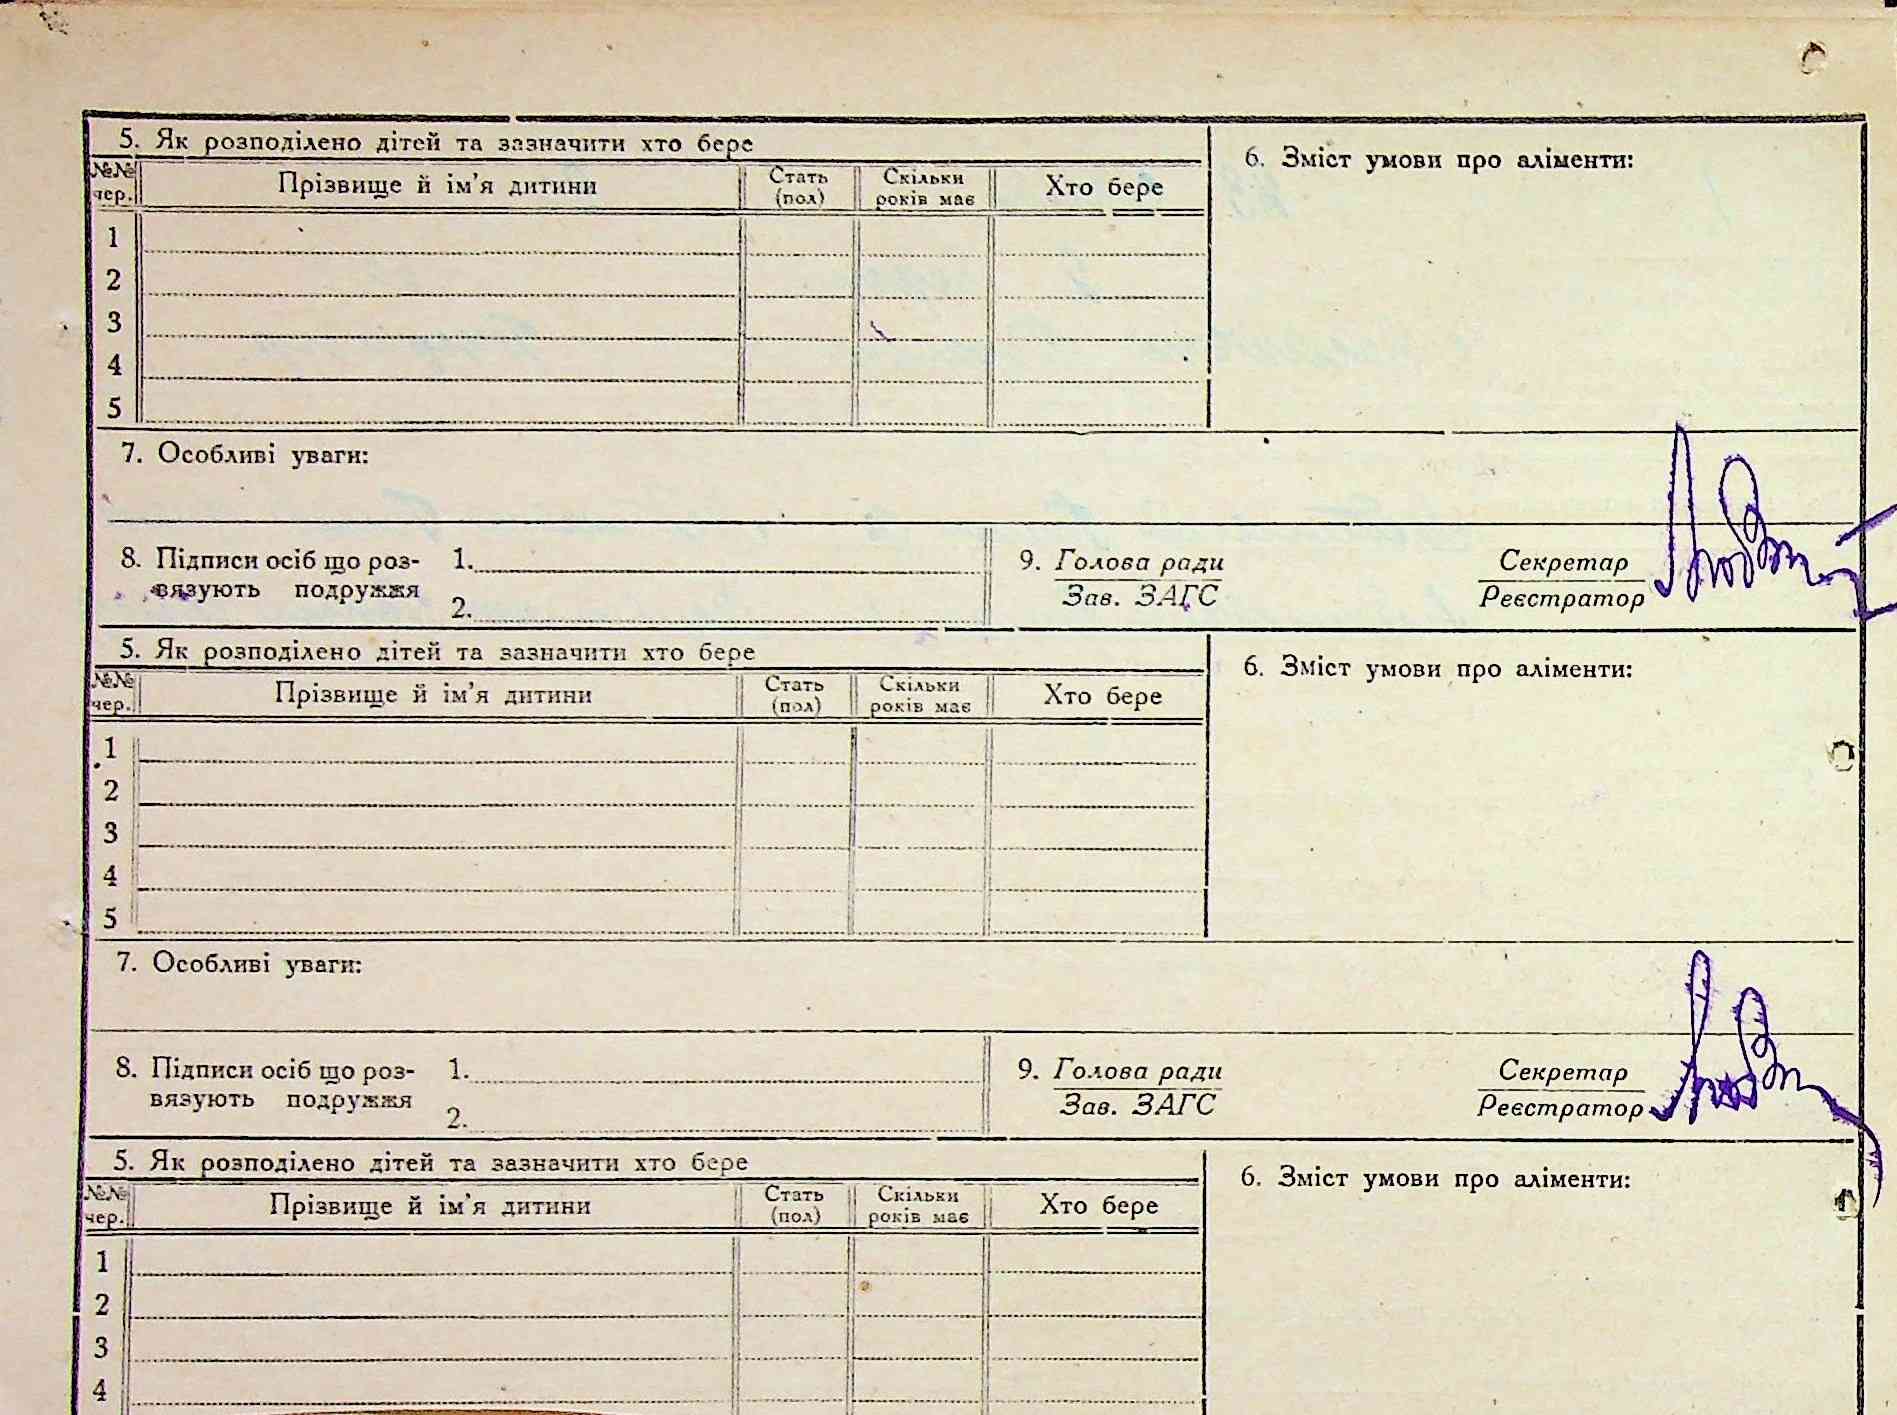 5. Як розподілено дітей та зазначити хто бере
6. Зміст умови про аліменти:
№№ чер. Прізвище й ім'я дитини Стать (пол) Скільки років має Хто бере
1
2
3
4
5
7. Особливі уваги:
8. Підписи осіб що роз- 1.
вязують подружжя 2.
9. Голова ради Секретар
Зав. ЗАГС Реєстратор
5. Як розподілено дітей та зазначити хто бере
6. Зміст умови про аліменти:
№№ чер. Прізвище й ім'я дитини Стать (пол) Скільки років має Хто бере
1
2
3
4
5
7. Особливі уваги:
8. Підписи осіб що роз- 1.
вязують подружжя 2.
9. Голова ради Секретар
Зав. ЗАГС Реєстратор
5. Як розподілено дітей та зазначити хто бере
6. Зміст умови про аліменти:
№№ чер. Прізвище й ім'я дитини Стать (пол) Скільки років має Хто бере
1
2
3
4